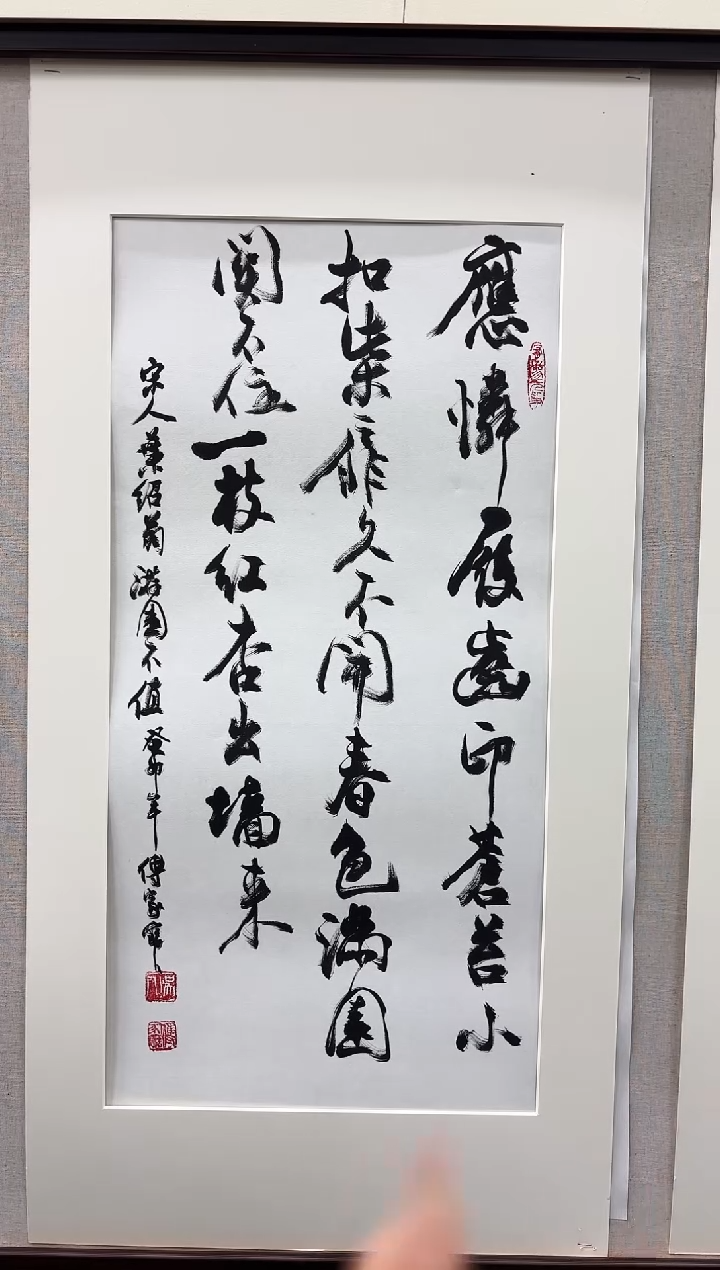 應憐屐齒印蒼苔小
扣柴扉久不開春色滿園
関不住一枝紅杏出墙来
宋人葉紹翁游園不值癸卯年傅家